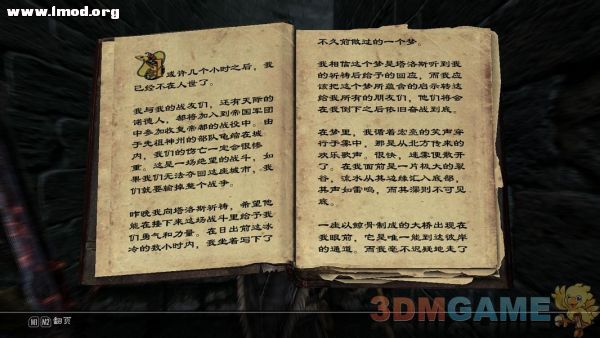 www.lmod.org
或许几个小时之后，我
已经不在人世了。
我与我的战友们，还有天际的
诺德人，都将加入到帝国军团
中参加收复帝都的战役中。由
于先祖神州的部队龟缩在城
内，我们的伤亡一定会很惨
重。这是一场绝望的战斗，如
果我们无法夺回这座城市，我
们就要输掉整个战争。
昨晚我向塔洛斯祈祷，希望他
能在接下来这场战斗里给予我
们勇气和力量。在日出前这冰
冷的数小时内，我坐着写下了
不久前做过的一个梦。
我相信这个梦是塔洛斯听到我
的祈祷后给予的回应，而我应
该把这个梦所蕴含的启示转达
给我所有的朋友们，他们将会
在我倒下之后依旧奋战到底。
在梦里，我循着宏亮的笑声穿
行于雾中，那是从北方传来的
欢乐歌声。很快，迷雾便散开
了。在我面前是一片极大的裂
谷，流水从其边缘汇入底部，
其声如雷鸣，而其深则不可见
底。
一座以鲸骨制成的大桥出现在
我眼前，它是唯一能到达彼岸
的通道。而我毫不迟疑地走了
N1 N2 翻页
3DMGAME